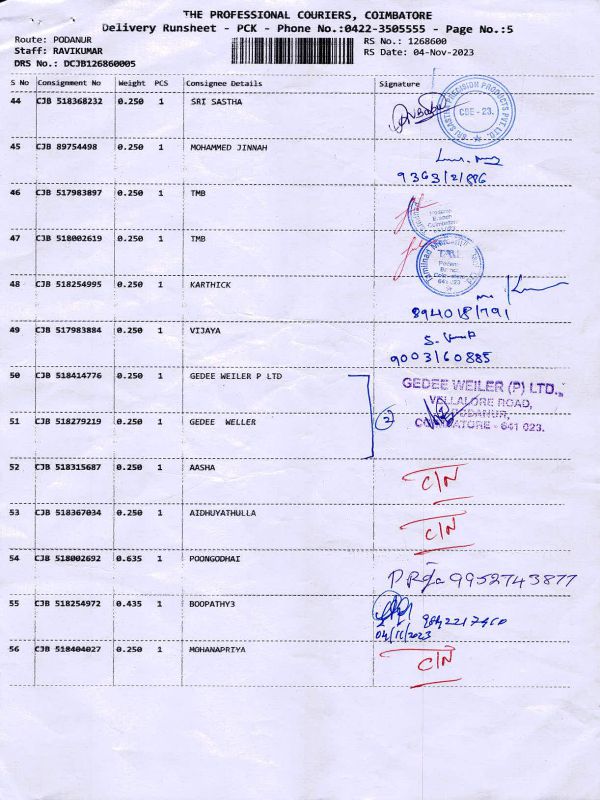 THE PROFESSIONAL COURIERS, COIMBATORE
Delivery Runsheet - PCK - Phone No.:0422-3505555 - Page No.:5
Route: PODANUR
RS No.: 1268600
Staff: RAVIKUMAR
RS Date: 04-Nov-2023
DRS No.: DCJB126860005
S No Consignment No Weight PCS Consignee Details Signature
44 CJB 518368232 0.250 1 SRI SASTHA
SRI SASTHA PRECISION PRODUCTS PVT. LTD.
CBE - 23.
45 CJB 89754498 0.250 1 MOHAMMED JINNAH
46 CJB 517983897 0.250 1 TMB
Podanur
Branch
Coimbatore
47 CJB 518002619 0.250 1 TMB
Tamilnad Mercantile
Podanur
Branch
641 023
48 CJB 518254995 0.250 1 KARTHICK
8940181791
49 CJB 517983884 0.250 1 VIJAYA
9003160885
50 CJB 518414776 0.250 1 GEDEE WEILER P LTD
GEDEE WEILER (P) LTD.,
VELLALORE ROAD,
PODANUR,
COIMBATORE - 641 023.
2
51 CJB 518279219 0.250 1 GEDEE WELLER
52 CJB 518315687 0.250 1 AASHA
C/N
53 CJB 518367034 0.250 1 AIDHUYATHULLA
C/N
54 CJB 518002692 0.635 1 POONGODHAI
9952743877
55 CJB 518254972 0.435 1 BOOPATHY3
04/11/2023
56 CJB 518404027 0.250 1 MOHANAPRIYA
C/N